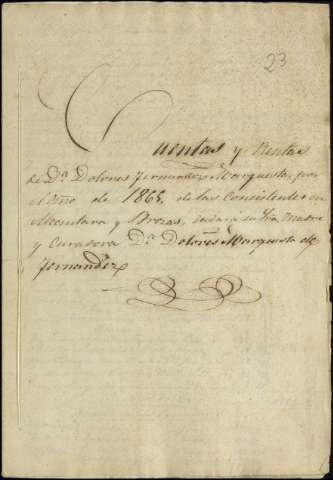 23
Cuentas y Rentas
de D.ª Dolores Fernandez Marquesta, por
el Año de 1865, de las Consistentes en
Alcantara y Brozas, dada á su Madre
y Curadora D.ª Dolores Marquesta de
Fernandez